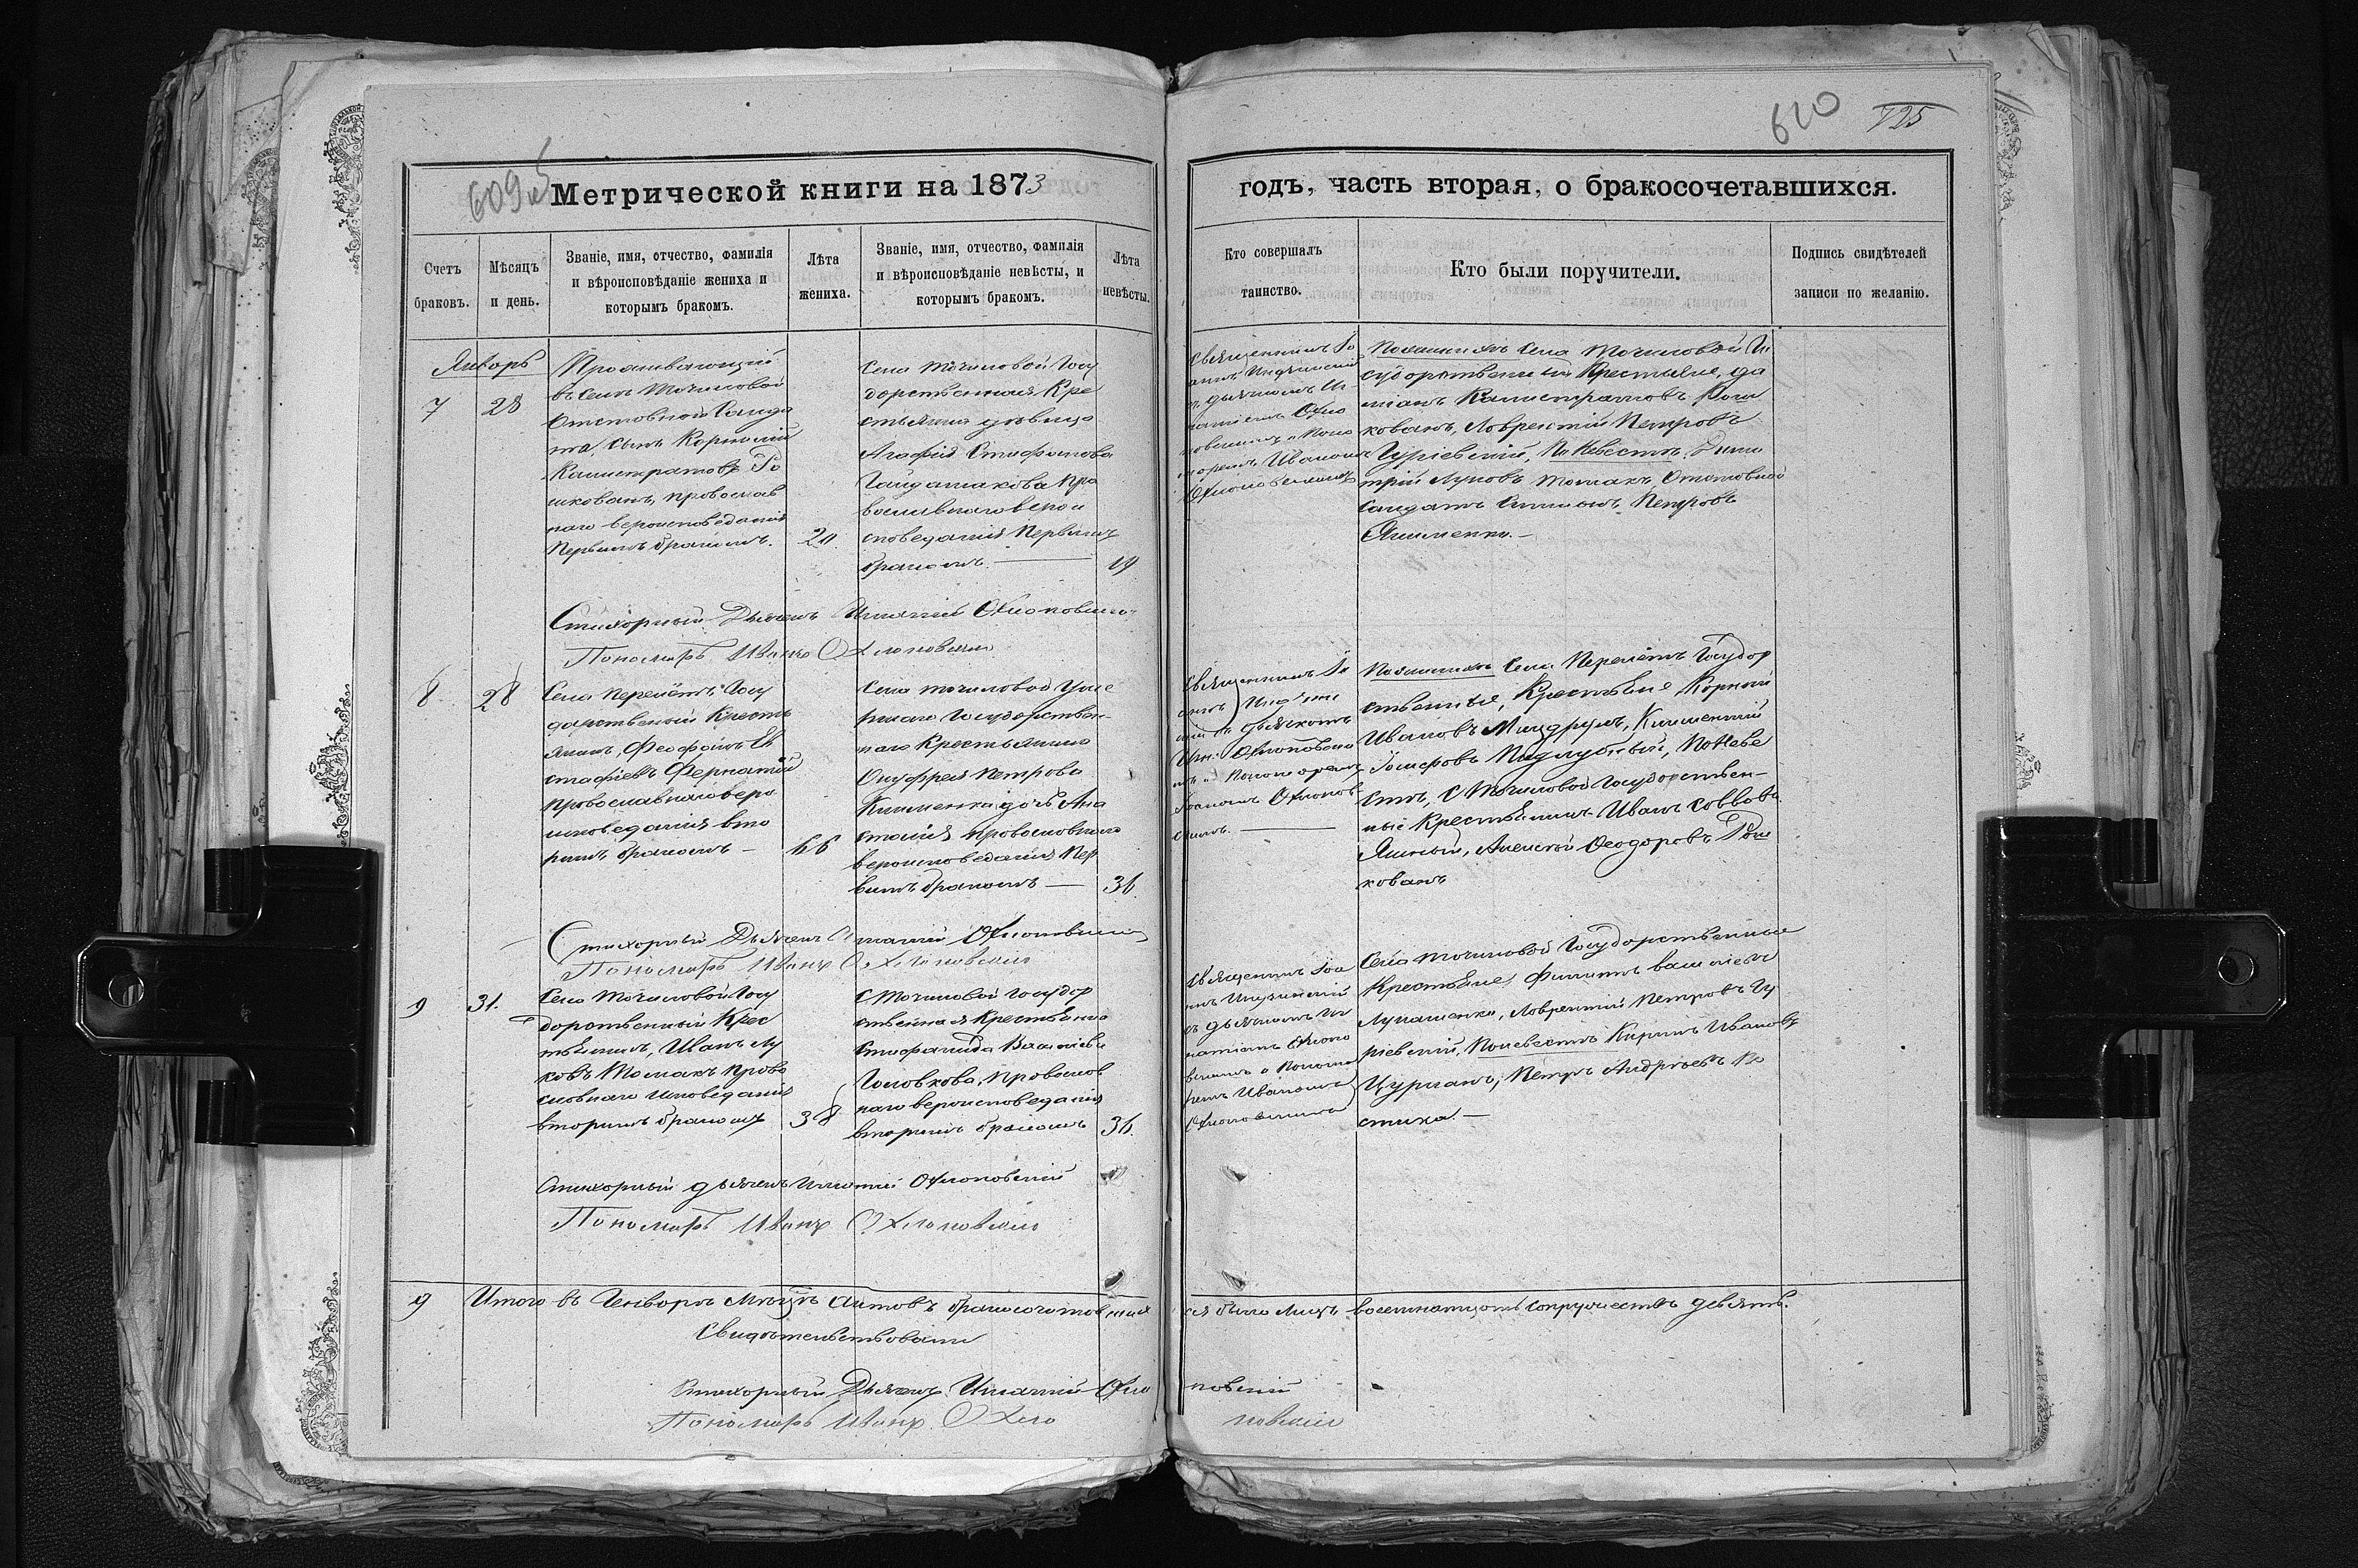 609 об
610
725
Метрической книги на 1873
годъ, часть вторая, о бракосочетавшихся.
Счетъ браковъ.
Мѣсяцъ и день.
Званіе, имя, отчество, фамилія
и вѣроисповѣданіе жениха и
которымъ бракомъ.
Лѣта жениха.
Званіе, имя, отчество, фамилія
и вѣроисповѣданіе невѣсты, и
которымъ бракомъ.
Лѣта невѣсты.
Кто совершалъ таинство.
Кто были поручители.
Подпись свидѣтелей
записи по желанію.
Январь
7
28
Проживающій
въ селѣ Точиловой
Отставной Солда
та, сынъ Корнилій
Калистратовъ Ро
шкованъ, православ
наго вероисповеданія
Первымъ бракомъ.
20.
Села Точиловой Госу
дарственная Кре
стьянка девица
Агафія Стефанова
Гайдамакова Пра
вославнаговерои
споведанія Первымъ
бракомъ.
19
Священникъ Іо
съ дьячкомъ Иг
натіемъ Охло
повскимъ и Поно
маремъ Иваномъ
Охлоповскимъ
По женихѣ села Точиловой Го
сударственные Крестьяне, Да
міанъ Калистратовъ Рош
кованъ, Лаврентій Петровъ
Гуріевскій, По Невестѣ, Дими
трій Луковъ Томакъ, Отставной
Солдатъ Симіонъ Петровъ
Якименко.
Стихарный Дьячекъ Игнатій Охлоповскій
Пономарь Иванъ Охлоповскій
8
28
Села Перелётъ Госу
дарственный Кресть
янинъ, Феофанъ Ев
стафіевъ
православнаго веро
исповеданія вто
рымъ бракомъ
66
Села Точиловой Уме
ршаго Государствен
наго Крестьянина
Онуфрея Петрова
дочь Ана
стасія православнаго
вероисповеданія Пер
вымъ бракомъ
36.
Священникъ Іо
съ дьячкомъ
Игн. Охлоповски
мъ и Пономаремъ
Іоаномъ Охлопов
скимъ.
По женихѣ Села Перелётъ Государ
ственные, Крестьяне Корнилій
Ивановъ Мындруля,
По Неве
стѣ, С. Точиловой Государствен
ные Крестьянинъ Иванъ Саввовъ
Яшный, Алексѣй Феодоровъ Рош
кованъ
Стихарный Дьячекъ Игнатій Охлоповскій
Пономарь Иванъ Охлоповскій
9
31.
Села Точиловой Госу
дарственный Крес
тьянинъ, Иванъ Лу
ковъ Томакъ Право
славнаго исповеданія
вторымъ бракомъ
38
С. Точиловой Государ
ственная Крестьянка
Стефанида Василіева
Головкова, Православ
наго вероисповеданія
вторымъ бракомъ
36.
Священникъ Іоа
съ дьячкомъ Иг
натіемъ Охлопо
вскимъ и Понома
ремъ Иваномъ
Охлоповскимъ
Села Точиловой Государственные
Крестьяне, Филиппъ Василіевъ
Лукашенко, Лаврентій Петровъ Гу
ріевскій, По невестѣ Кирилъ Ивановъ
Цурканъ, Петръ Андреевъ Ко
стика.
Стихарный Дьячекъ Игнатій Охлоповскій
Пономарь Иванъ Охлоповскій
9
Итого въ Генворѣ Мѣсяцѣ Актовъ бракосочетавших
ся было лицъ восемнатцать супружествъ девять.
Свидѣтельствовали
Стихарный Дьячекъ Игнатій Охло
повскій
Пономарь Иванъ Охло
повскій